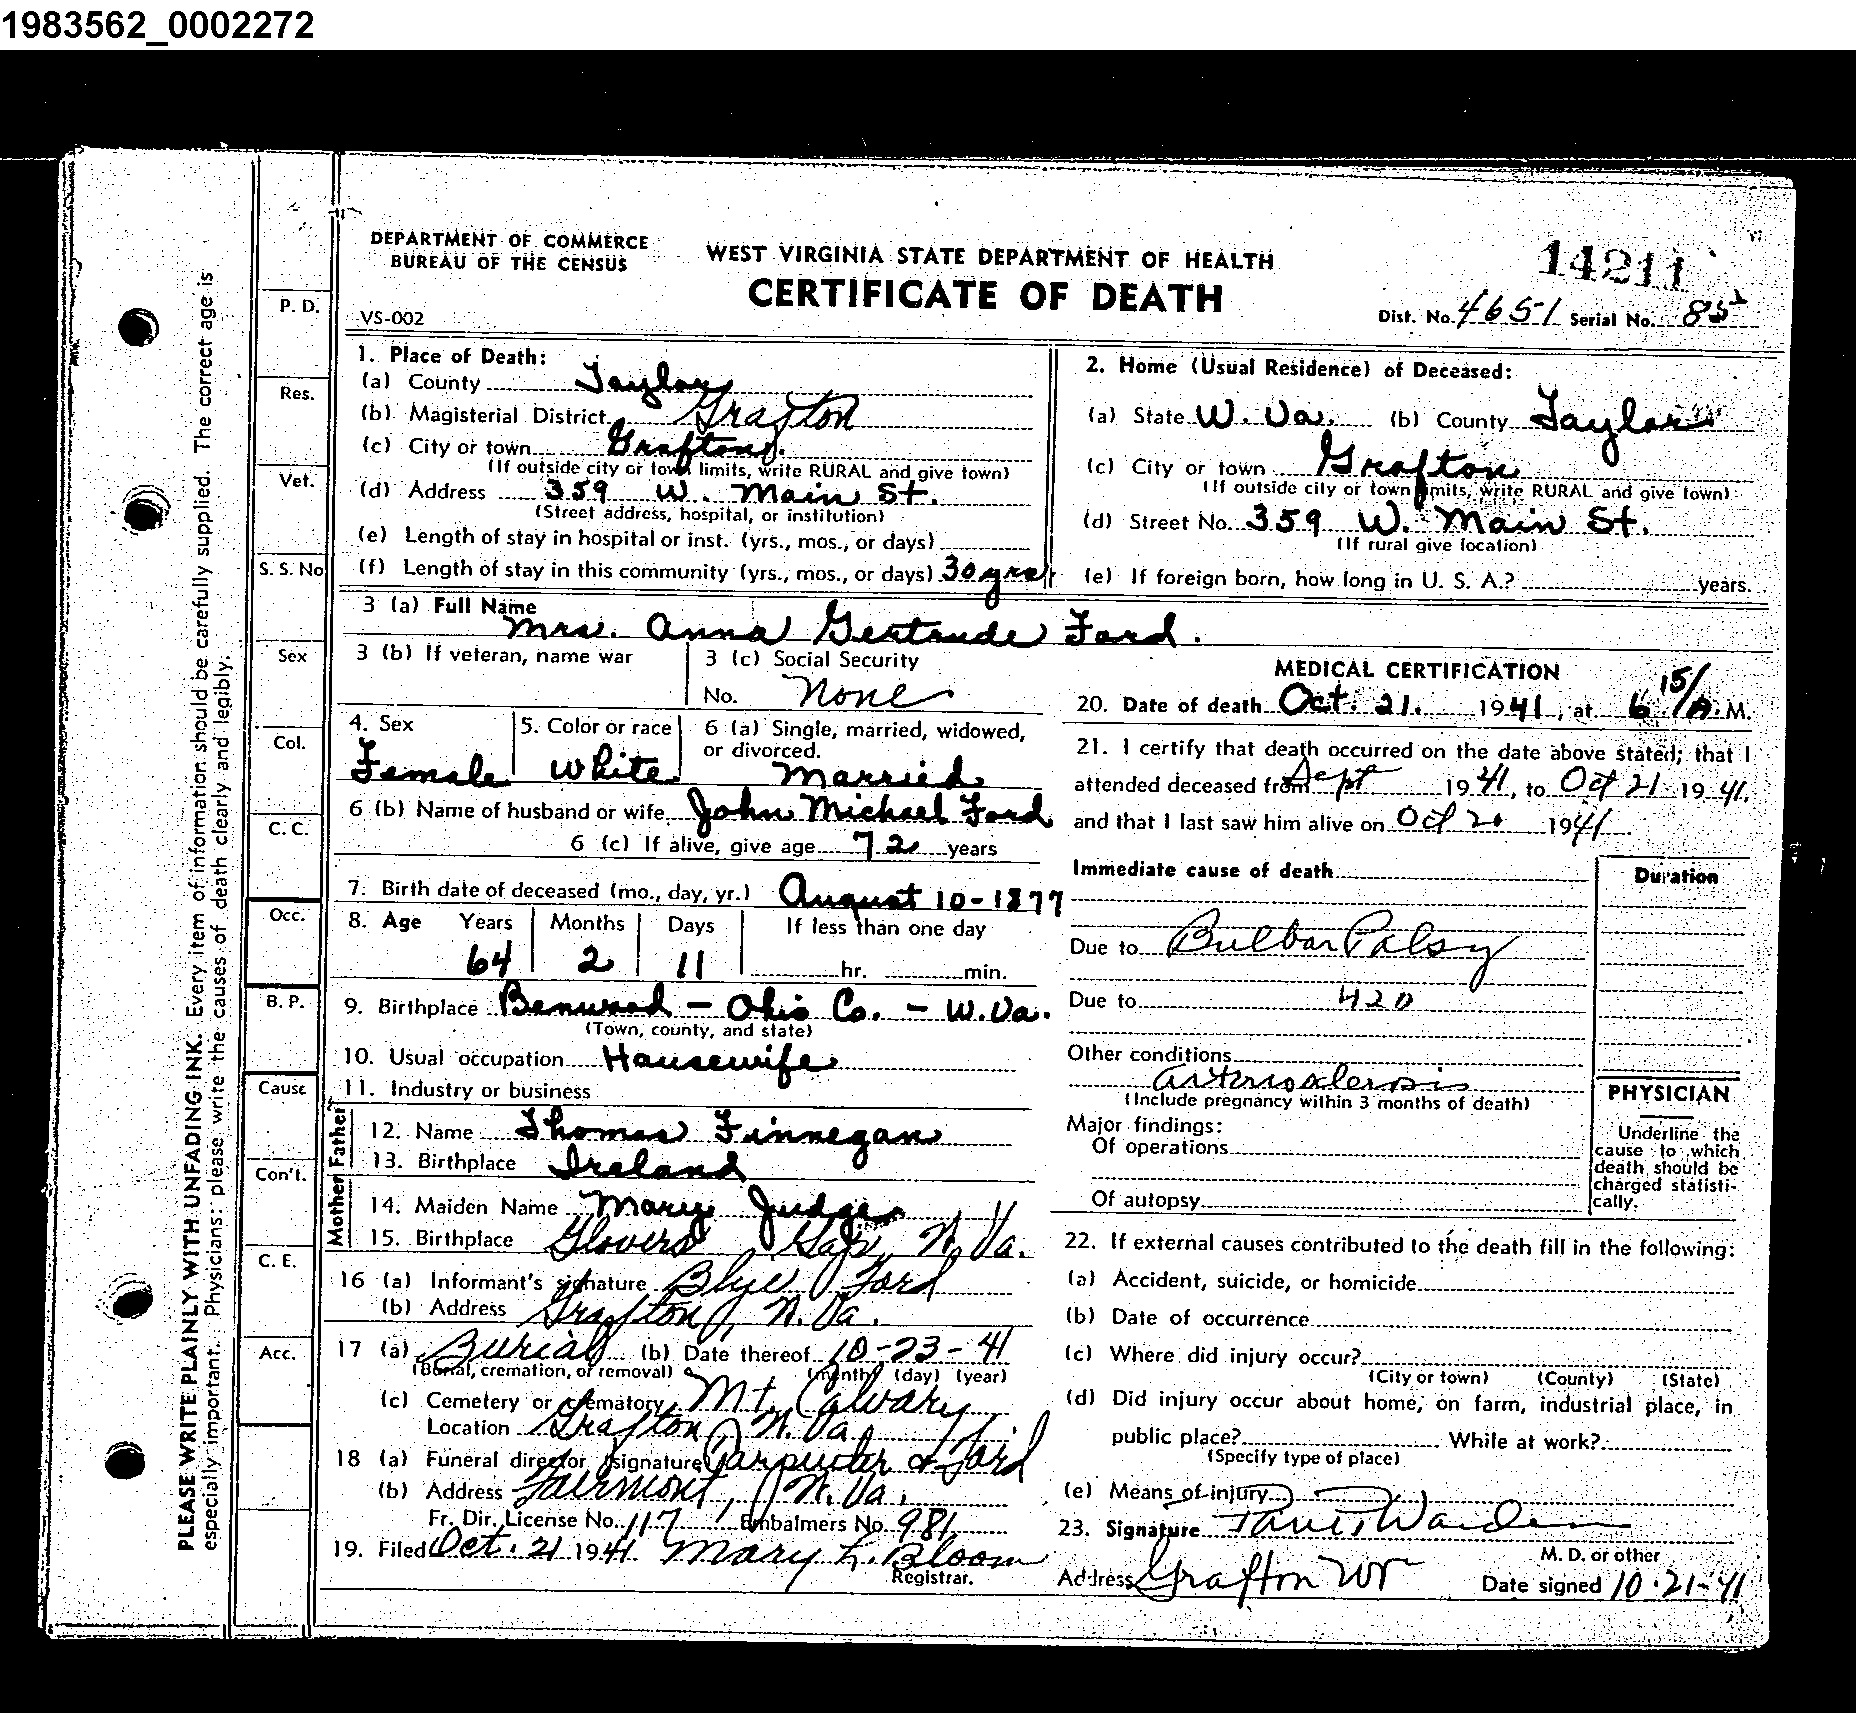 1983562_0002272
DEPARTMENT OF COMMERCE
BUREAU OF THE CENSUS
WEST VIRGINIA STATE DEPARTMENT OF HEALTH
CERTIFICATE OF DEATH
14211
VS-002
Dist. No. 4651 Serial No. 85
PLEASE WRITE PLAINLY WITH UNFADING INK. Every item of information should be carefully supplied. The correct age is
especially important. Physicians: please write the causes of death clearly and legibly.
P. D.
Res.
Vet.
S. S. No
Sex
Col.
C. C.
Occ.
B. P.
Cause
Con't.
C. E.
Acc.
1. Place of Death:
(a) County Taylor
(b) Magisterial District Grafton
(c) City or town Grafton
(If outside city or town limits, write RURAL and give town)
(d) Address 359 W. Main St.
(Street address, hospital, or institution)
(e) Length of stay in hospital or inst. (yrs., mos., or days)
(f) Length of stay in this community (yrs., mos., or days) 30 yrs.
2. Home (Usual Residence) of Deceased:
(a) State W. Va. (b) County Taylor
(c) City or town Grafton
(If outside city or town limits, write RURAL and give town)
(d) Street No. 359 W. Main St.
(If rural give location)
(e) If foreign born, how long in U. S. A.? years.
3 (a) Full Name
Mrs. Anna Gertrude Ford.
3 (b) If veteran, name war
3 (c) Social Security
No. None
4. Sex
Female
5. Color or race
White
6 (a) Single, married, widowed,
or divorced.
Married
6 (b) Name of husband or wife John Michael Ford
6 (c) If alive, give age 72 years
7. Birth date of deceased (mo., day, yr.) August 10-1877
8. Age Years Months Days If less than one day
64 2 11 hr. min.
9. Birthplace Benwood - Ohio Co. - W. Va.
(Town, county, and state)
10. Usual occupation Housewife
11. Industry or business
Father
12. Name Thomas Finnegan
13. Birthplace Ireland
Mother
14. Maiden Name Mary Judge
15. Birthplace Glovers Gap, W. Va.
16 (a) Informant's signature Blye Ford
(b) Address Grafton, W. Va.
17 (a) Burial (b) Date thereof 10-23-41
(Burial, cremation, or removal) (month) (day) (year)
(c) Cemetery or crematory Mt. Calvary
Location Grafton, W. Va.
18 (a) Funeral director signature Carpenter & Ford
(b) Address Fairmont, W. Va.
Fr. Dir. License No. 117 Embalmers No. 981
19. Filed Oct. 21 1941 Mary L. Bloom
Registrar.
MEDICAL CERTIFICATION
20. Date of death Oct. 21. 1941, at 6 15/A.M.
21. I certify that death occurred on the date above stated; that I
attended deceased from Sept 1941, to Oct 21 1941.
and that I last saw him alive on Oct 20 1941
Immediate cause of death
Duration
Due to Bulbar Palsy
Due to 420
Other conditions
arteriosclerosis
(Include pregnancy within 3 months of death)
Major findings:
Of operations
Of autopsy
PHYSICIAN
Underline the
cause to which
death should be
charged statisti-
cally.
22. If external causes contributed to the death fill in the following:
(a) Accident, suicide, or homicide
(b) Date of occurrence
(c) Where did injury occur?
(City or town) (County) (State)
(d) Did injury occur about home, on farm, industrial place, in
public place? While at work?
(Specify type of place)
(e) Means of injury
23. Signature Warden
M. D. or other
Address Grafton W Date signed 10-21-41